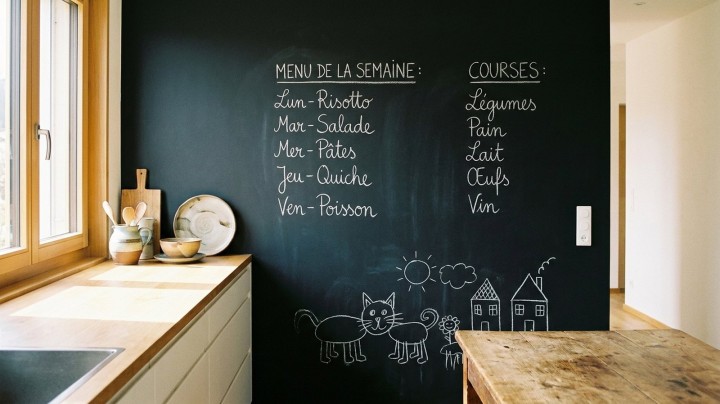 MENU DE LA SEMAINE:
Lun - Risotto
Mar - Salade
Mer - Pâtes
Jeu - Quiche
Ven - Poisson
COURSES:
Légumes
Pain
Lait
Œufs
Vin